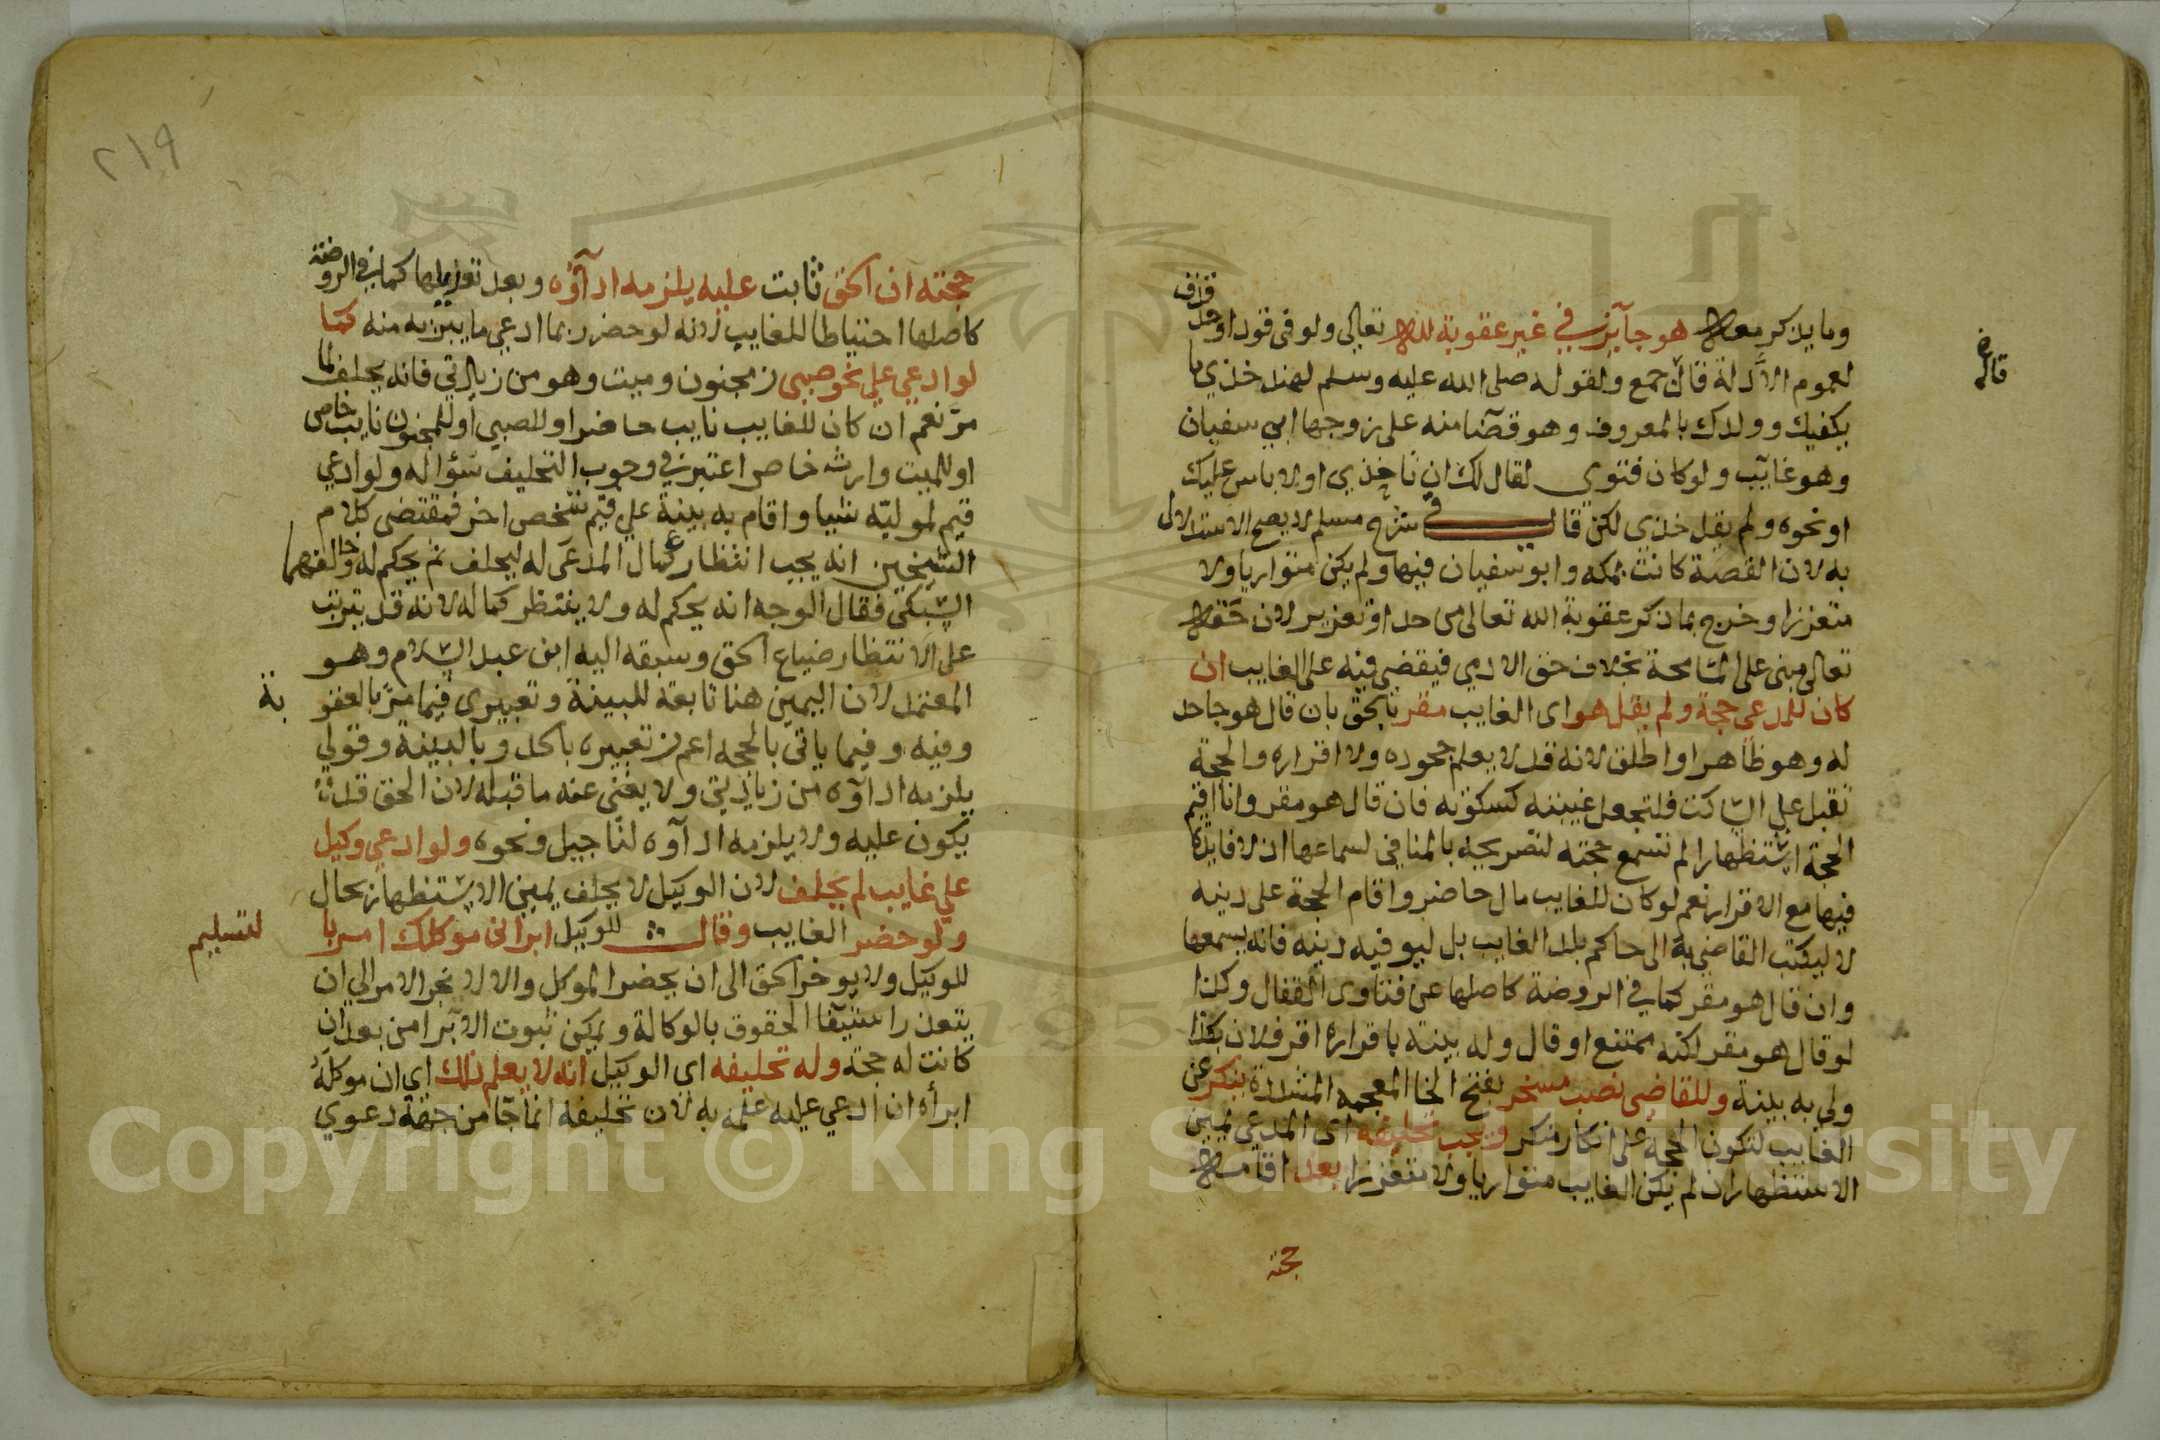 وما يذكر معه هو جآيز في غير عقوبة لله تعالي ولو في قود او حد قذف
لعموم الادلة قال جمع ولقوله صلي الله عليه وسلم لهند خذي ما
يكفيك وولدك بالمعروف وهو قضا منه علي زوجها ابي سفيان
وهو غايب ولو كان فتوي لقال لك ان تاخذي او لا باس عليك
او نحوه ولم يقل خذي لكن قال في شرح مسلم لا يصح الاستدلال
به لان القصة كانت بمكه وابو سفيان فيها ولم يكن متواريا ولا
متعززا وخرج بما ذكر عقوبة الله تعالي من حد او تعزير لان حقه
تعالي مبني علي المسامحة بخلاف حق الادمي فيقضي فيه علي الغايب ان
كان للمدعي حجة ولم يقل هو اي الغايب مقر بالحق بان قال هو جاحد
له وهو ظاهر او اطلق لانه قد لا يعلم جحوده ولا اقراره والحجة
تقبل علي الساكت فلتجعل غيبته كسكوته فان قال هو مقر وانا اقيم
الحجة استظهارا لم تسمع حجته لتصريحه بالمنافي لسماعها اذ لا فايدة
فيها مع الاقرار نعم لو كان للغايب مال حاضر واقام الحجة علي دينه
لا ليكتب القاضي به الي حاكم بلد الغايب بل ليوفيه دينه فانه يسمعها
وان قال هو مقر كما في الروضة كاصلها عن فتاوي القفال وكذا
لو قال هو مقر لكنه ممتنع او قال وله بينة باقراره اقر فلان بكذا
ولي به بينة وللقاضي نصب مسخر بفتح الخا المعجمه المشددة ينكر عن
الغايب لتكون الحجة علي انكار منكر ويجب تحليفه اي المدعي يمين
الاستظهار ان لم يكن الغايب متواريا ولا متعززا بعد اقامة
حجته
٢١٩
حجته ان الحق ثابت عليه يلزمه ادآؤه وبعد تعديلها كما في الروضة
كاصلها احتياطا للغايب لانه لو حضر ربما ادعي ما يبريه منه كما
لو ادعي علي نحو صبي من مجنون وميت وهو من زيادتي فانه يحلف لما
مر نعم ان كان للغايب نايب حاضر او للصبي او للمجنون نايب خاص
او للميت وارث خاص اعتبر في وجوب التحليف سؤاله ولو ادعي
قيم لموليه شيا واقام به بينة علي قيم شخص اخر فمقتضي كلام
الشيخين انه يجب انتظار كمال المدعي له ليحلف ثم يحكم له وخالفهما
السبكي فقال الوجه انه يحكم له ولا ينتظر كماله لانه قد يترتب
علي الانتظار ضياع الحق وسبقه اليه ابن عبد السلام وهو
المعتمد لان اليمين هنا تابعة للبينة وتعبيري فيما مر بالعقو بة
وفيه وفيما ياتي بالحجه اعم من تعبيره بالحد وبالبينة وقولي
يلزمه ادآؤه من زيادتي ولا يغني عنه ما قبله لان الحق قد
يكون عليه ولا يلزمه ادآوه لتاجيل ونحوه ولو ادعي وكيل
علي غايب لم يحلف لان الوكيل لا يحلف يمين الاستظهار بحال
ولو حضر الغايب وقال للوكيل ابراني موكلك امر با لتسليم
للوكيل ولا يوخر الحق الي ان يحضر الموكل والا لانجر الامر الي ان
يتعذر استيفا الحقوق بالوكالة ويمكن ثبوت الابرا من بعد ان
كانت له حجة وله تحليفه اي الوكيل انه لا يعلم ذلك اي ان موكله
ابرأه ان ادعي عليه علمه به لان تحليفه انما جا من جهة دعوي